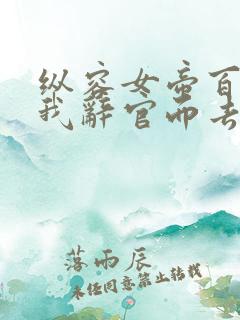 纵容女帝百
我辞官而去
落雨辰
未经同意禁止转载